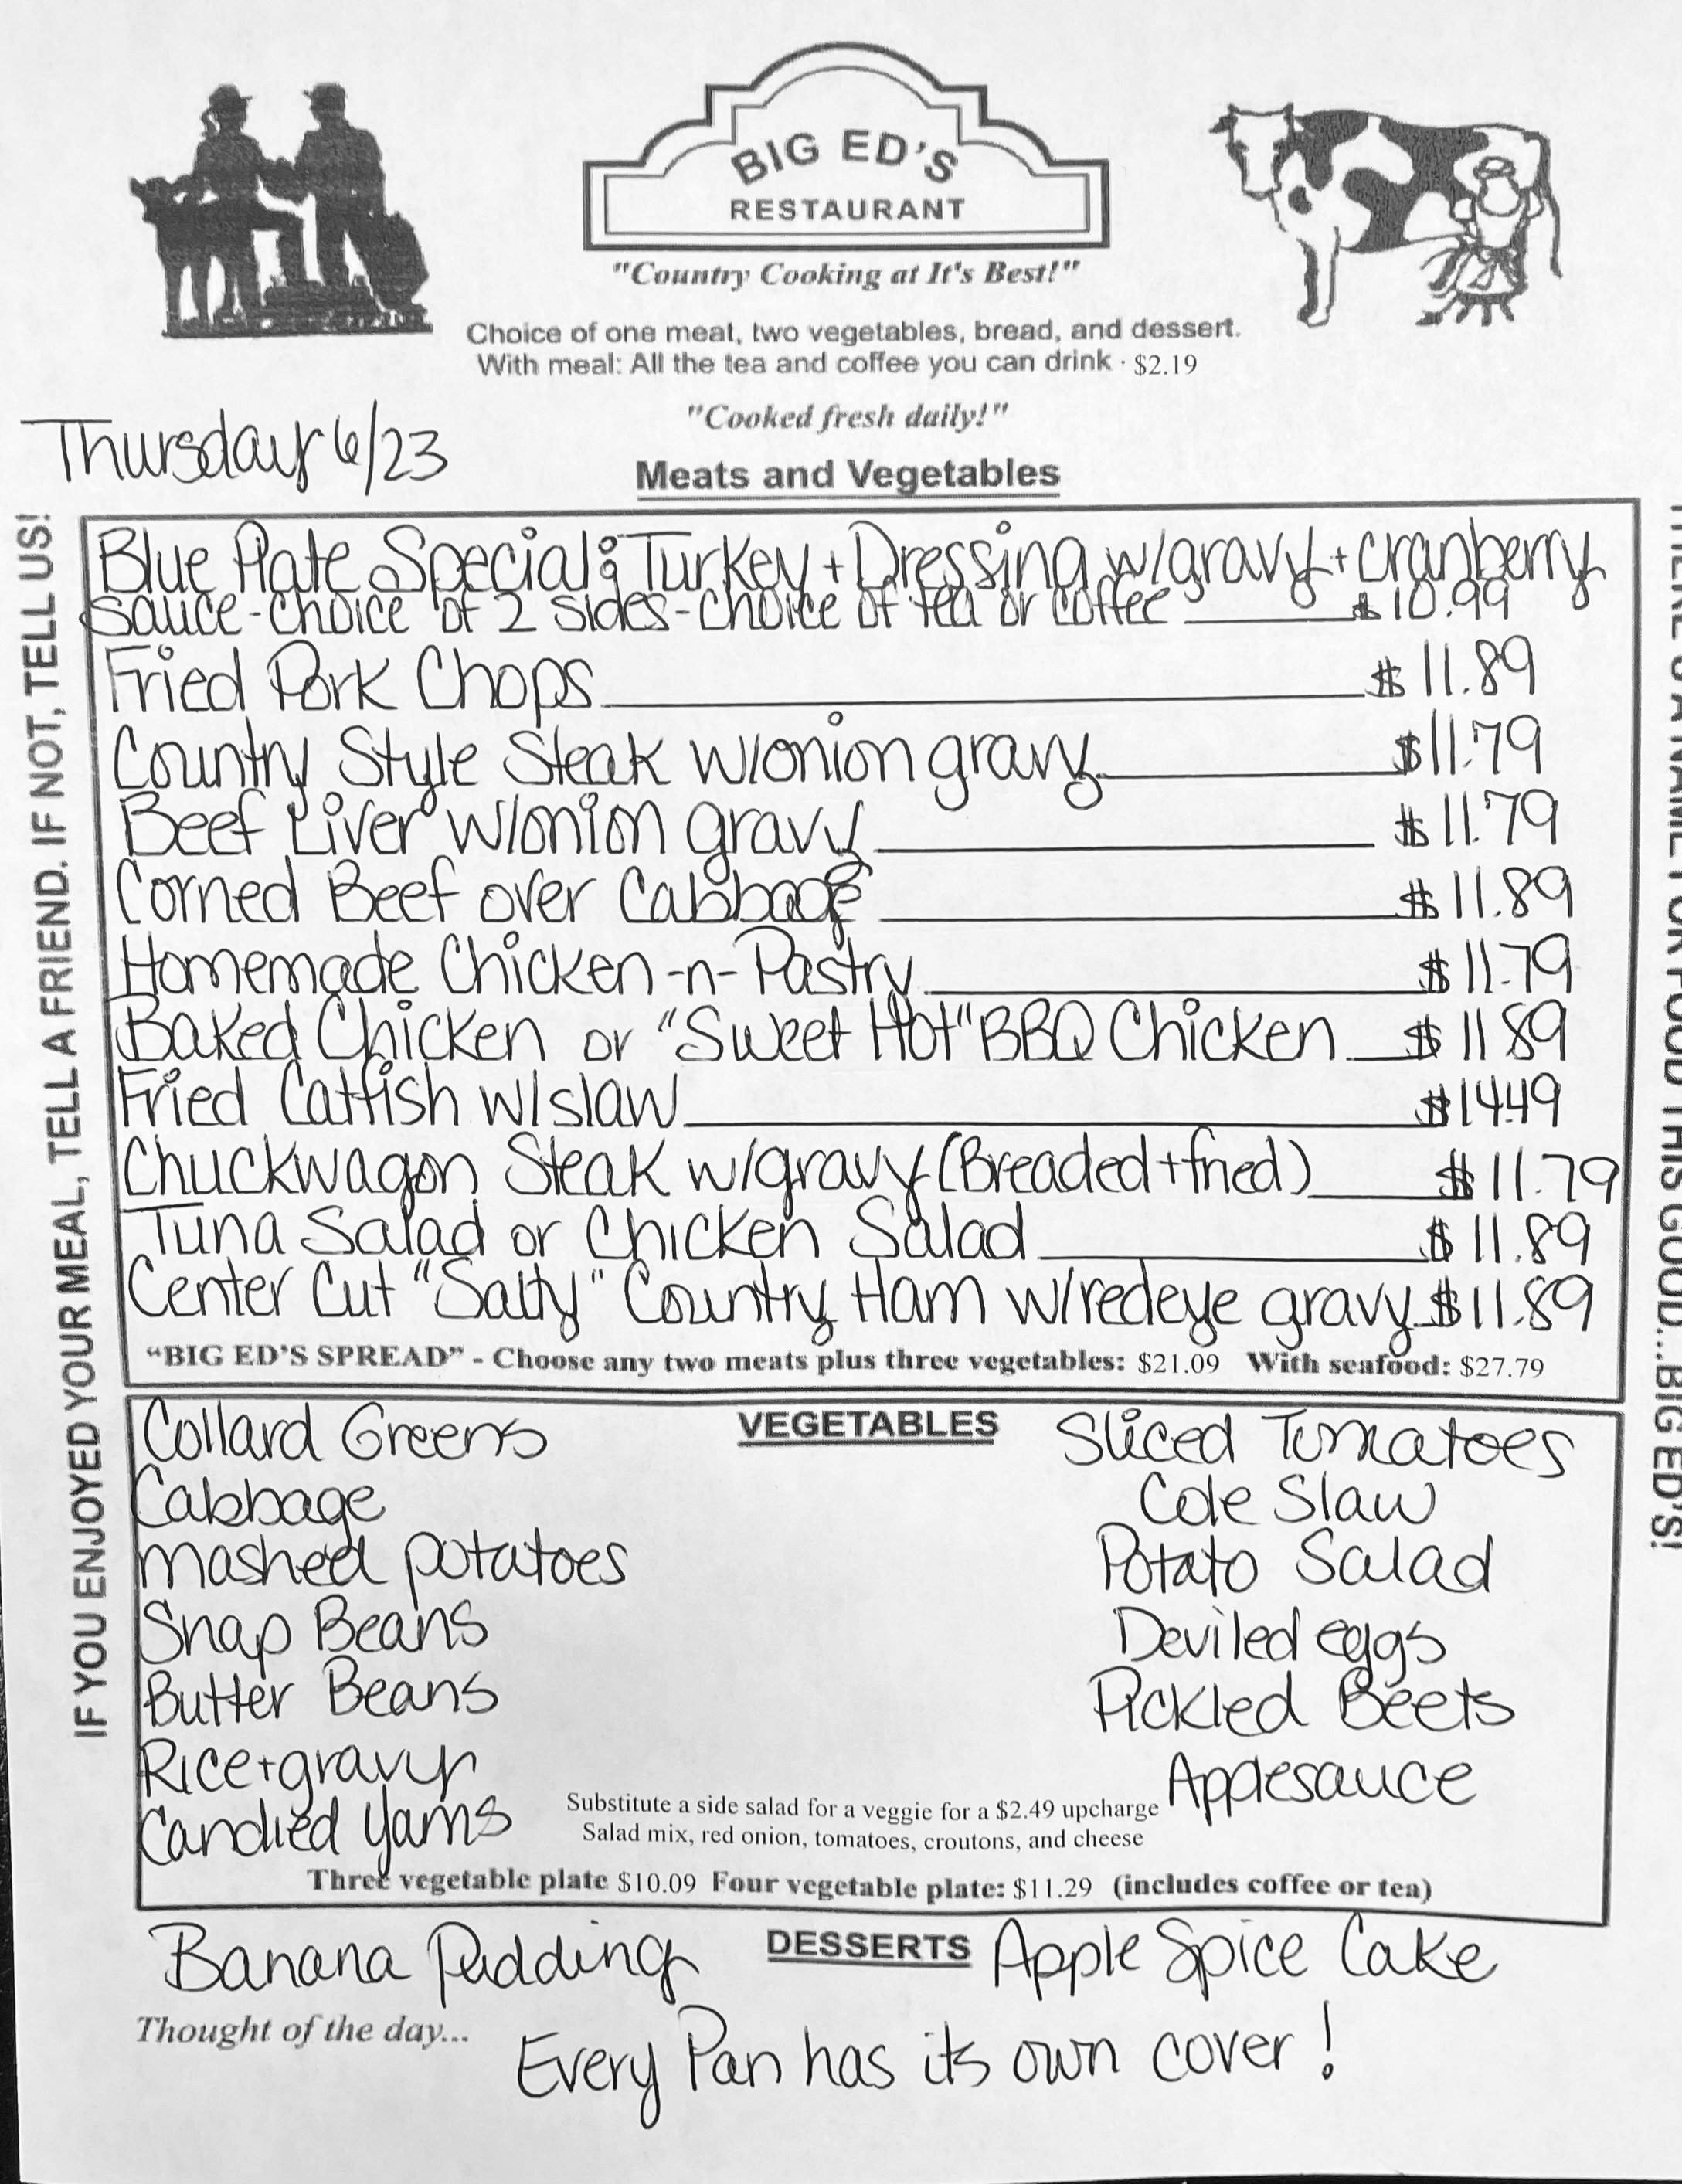 BIG ED'S
RESTAURANT
"Country Cooking at It's Best!"
Choice of one meat, two vegetables, bread, and dessert.
With meal: All the tea and coffee you can drink · $2.19
"Cooked fresh daily!"
Thursday 6/23
Meats and Vegetables
IF YOU ENJOYED YOUR MEAL, TELL A FRIEND. IF NOT, TELL US!
Blue Plate Special: Turkey + Dressing w/gravy + cranberry
sauce - choice of 2 sides - choice of tea or coffee $10.99
Fried Pork Chops $11.89
Country Style Steak w/onion gravy $11.79
Beef Liver w/onion gravy $11.79
Corned Beef over Cabbage $11.89
Homemade Chicken -n- Pastry $11.79
Baked Chicken or "Sweet Hot" BBQ Chicken $11.89
Fried Catfish w/slaw $14.49
Chuckwagon Steak w/gravy (Breaded + fried) $11.79
Tuna Salad or Chicken Salad $11.89
Center Cut "Salty" Country Ham w/redeye gravy $11.89
"BIG ED'S SPREAD" - Choose any two meats plus three vegetables: $21.09 With seafood: $27.79
THERE'S A NAME FOR FOOD THIS GOOD...BIG ED'S!
VEGETABLES
Collard Greens
Cabbage
Mashed potatoes
Snap Beans
Butter Beans
Rice + gravy
Candied Yams
Sliced Tomatoes
Cole Slaw
Potato Salad
Deviled eggs
Pickled Beets
Applesauce
Substitute a side salad for a veggie for a $2.49 upcharge
Salad mix, red onion, tomatoes, croutons, and cheese
Three vegetable plate $10.09 Four vegetable plate: $11.29 (includes coffee or tea)
Banana Pudding DESSERTS Apple Spice Cake
Thought of the day...
Every Pan has its own cover!